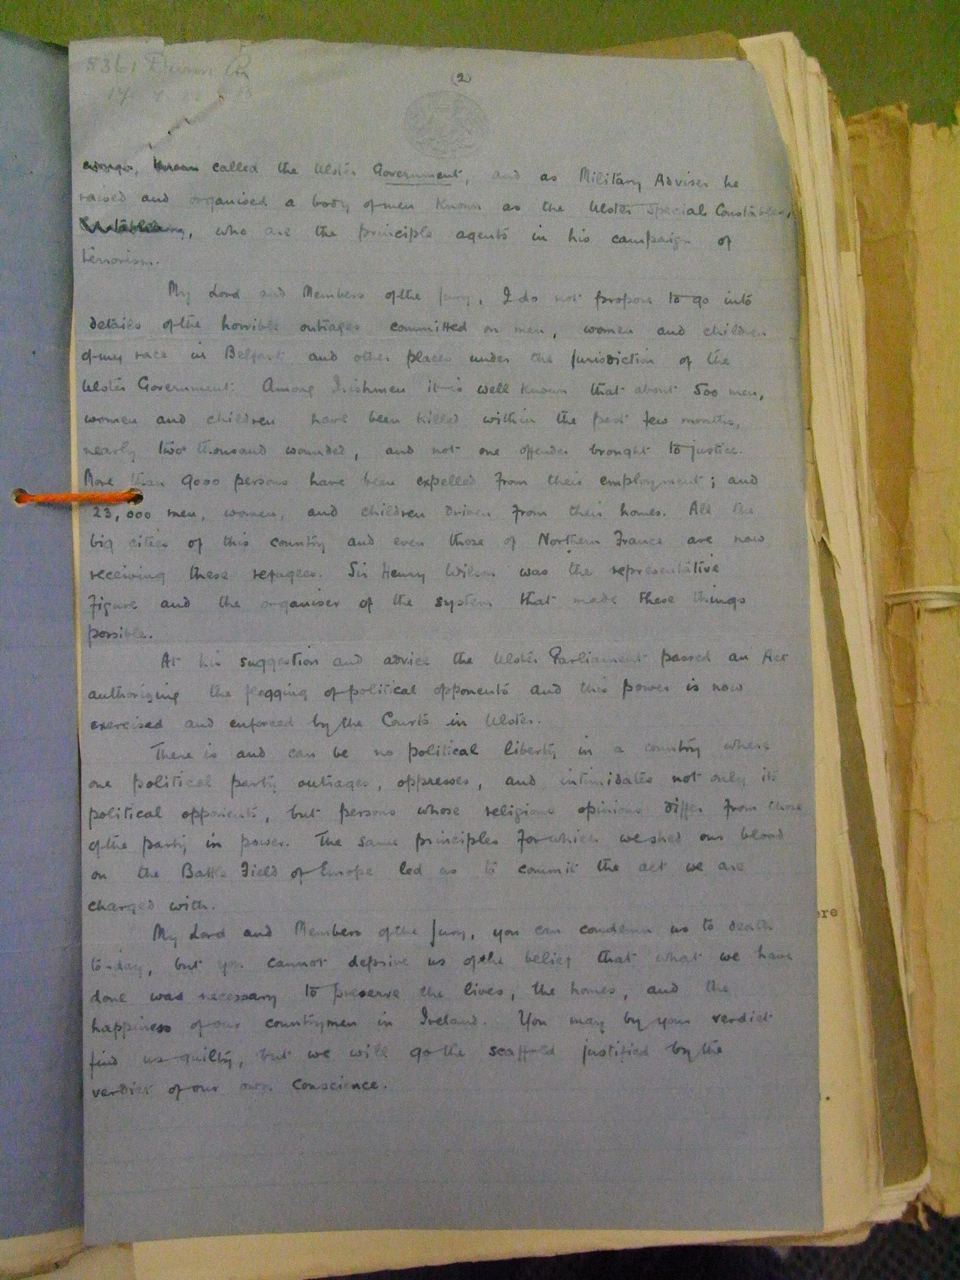 (2)
called the Ulster Government, and as Military Adviser he
raised and organised a body of men known as the Ulster Special Constables,
who are the principle agents in his campaign of
terrorism.
My Lord and Members of the Jury, I do not propose to go into
details of the horrible outrages committed on men, women and children
of my race in Belfast and other places under the jurisdiction of the
Ulster Government. Among Irishmen it is well known that about 500 men,
women and children have been killed within the past few months,
nearly two thousand wounded, and not one offender brought to justice.
More than 9000 persons have been expelled from their employment; and
23,000 men, women, and children driven from their homes. All the
big cities of this country and even those of Northern France are now
receiving these refugees. Sir Henry Wilson was the representative
figure and the organiser of the system that made these things
possible.
At his suggestion and advice the Ulster Parliament passed an Act
authorizing the flogging of political opponents and this power is now
exercised and enforced by the Courts in Ulster.
There is and can be no political liberty in a country where
one political party outrages, oppresses, and intimidates not only its
political opponents, but persons whose religious opinions differ from those
of the party in power. The same principles for which we shed our blood
on the Battle Field of Europe led us to commit the act we are
charged with.
My Lord and Members of the Jury, you can condemn us to death
to-day, but you cannot deprive us of the belief that what we have
done was necessary to preserve the lives, the homes, and the
happiness of our countrymen in Ireland. You may by your verdict
find us guilty, but we will go the scaffold justified by the
verdict of our own conscience.